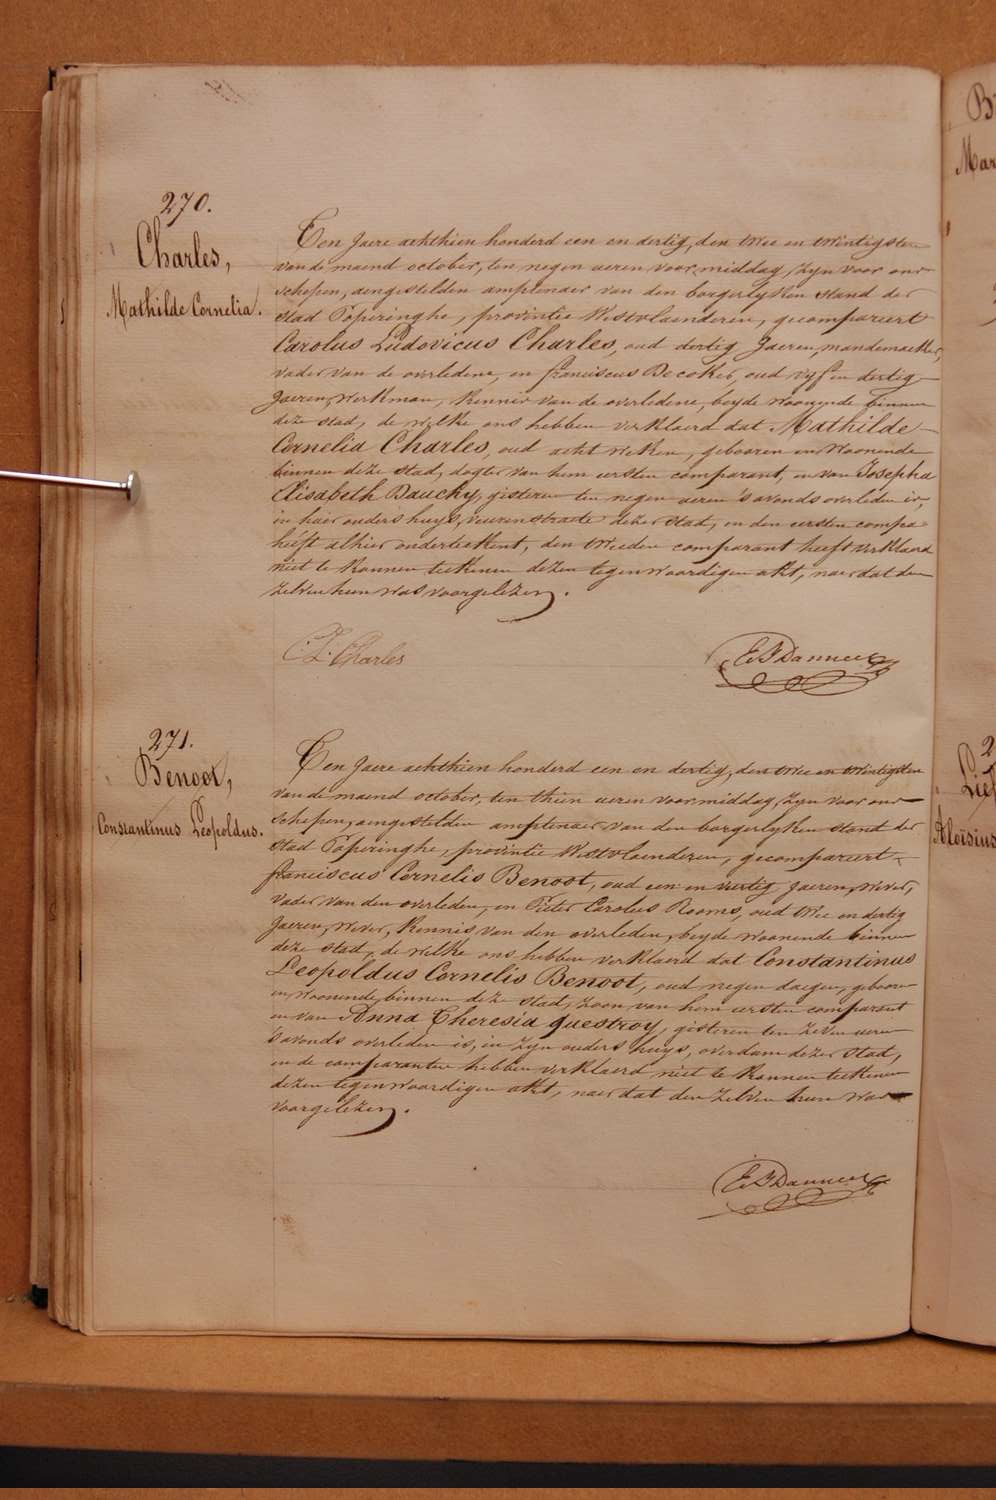 270.
Charles,
Mathilde Cornelia.
Een Jaere achthien honderd een en dertig, den twee en twintigsten
van de maend october, ten negen ueren voormiddag, zyn voor ons
schepen, aengestelden amptenaer van den borgerlyken stand der
stad Poperinghe, provintie Westvlaenderen, gecompareert
Carolus Ludovicus Charles, oud dertig Jaeren, mandemaeker,
vader van de overledene, en franciscus Decoker, oud vyf en dertig
Jaeren, Werkman, kennis van de overledene, beyde woonende binnen
deze stad, de welke ons hebben verklaerd dat Mathilde
Cornelia Charles, oud acht weken, gebooren en woonende
binnen deze stad, dogter van hem eersten comparant, en van Josepha
Elisabeth Dauchy, gisteren ten negen ueren 's avonds overleden is,
in haer ouders huys, veurenstraete dezer stad, en den eersten compa
heeft alhier onderteekent, den tweeden comparant heeft verklaerd
niet te konnen teekenen dezen tegenwoordigen akt, naer dat den
zelven hun was voorgelezen.
C. L. Charles
271.
Benoot,
Constantinus Leopoldus.
Een Jaere achthien honderd een en dertig, den twee en twintigsten
van de maend october, ten thien ueren voormiddag, zyn voor ons
schepen, aengestelden amptenaer van den borgerlyken stand der
stad Poperinghe, provintie Westvlaenderen, gecompareert
franciscus Cornelis Benoot, oud een en veertig Jaeren, wever,
vader van den overleden, en Pieter Carolus Rooms, oud twee en dertig
Jaeren, wever, kennis van den overleden, beyde woonende binnen
deze stad, de welke ons hebben verklaerd dat Constantinus
Leopoldus Cornelis Benoot, oud negen daegen, gebooren
en woonende binnen deze stad, zoon van hem eersten comparant
en van Anna Theresia questroy, gisteren ten zeven ueren
's avonds overleden is, in zyn ouders huys, overdam dezer stad,
en de comparanten hebben verklaerd niet te konnen teekenen
dezen tegenwoordigen akt, naer dat den zelven hun was
voorgelezen.